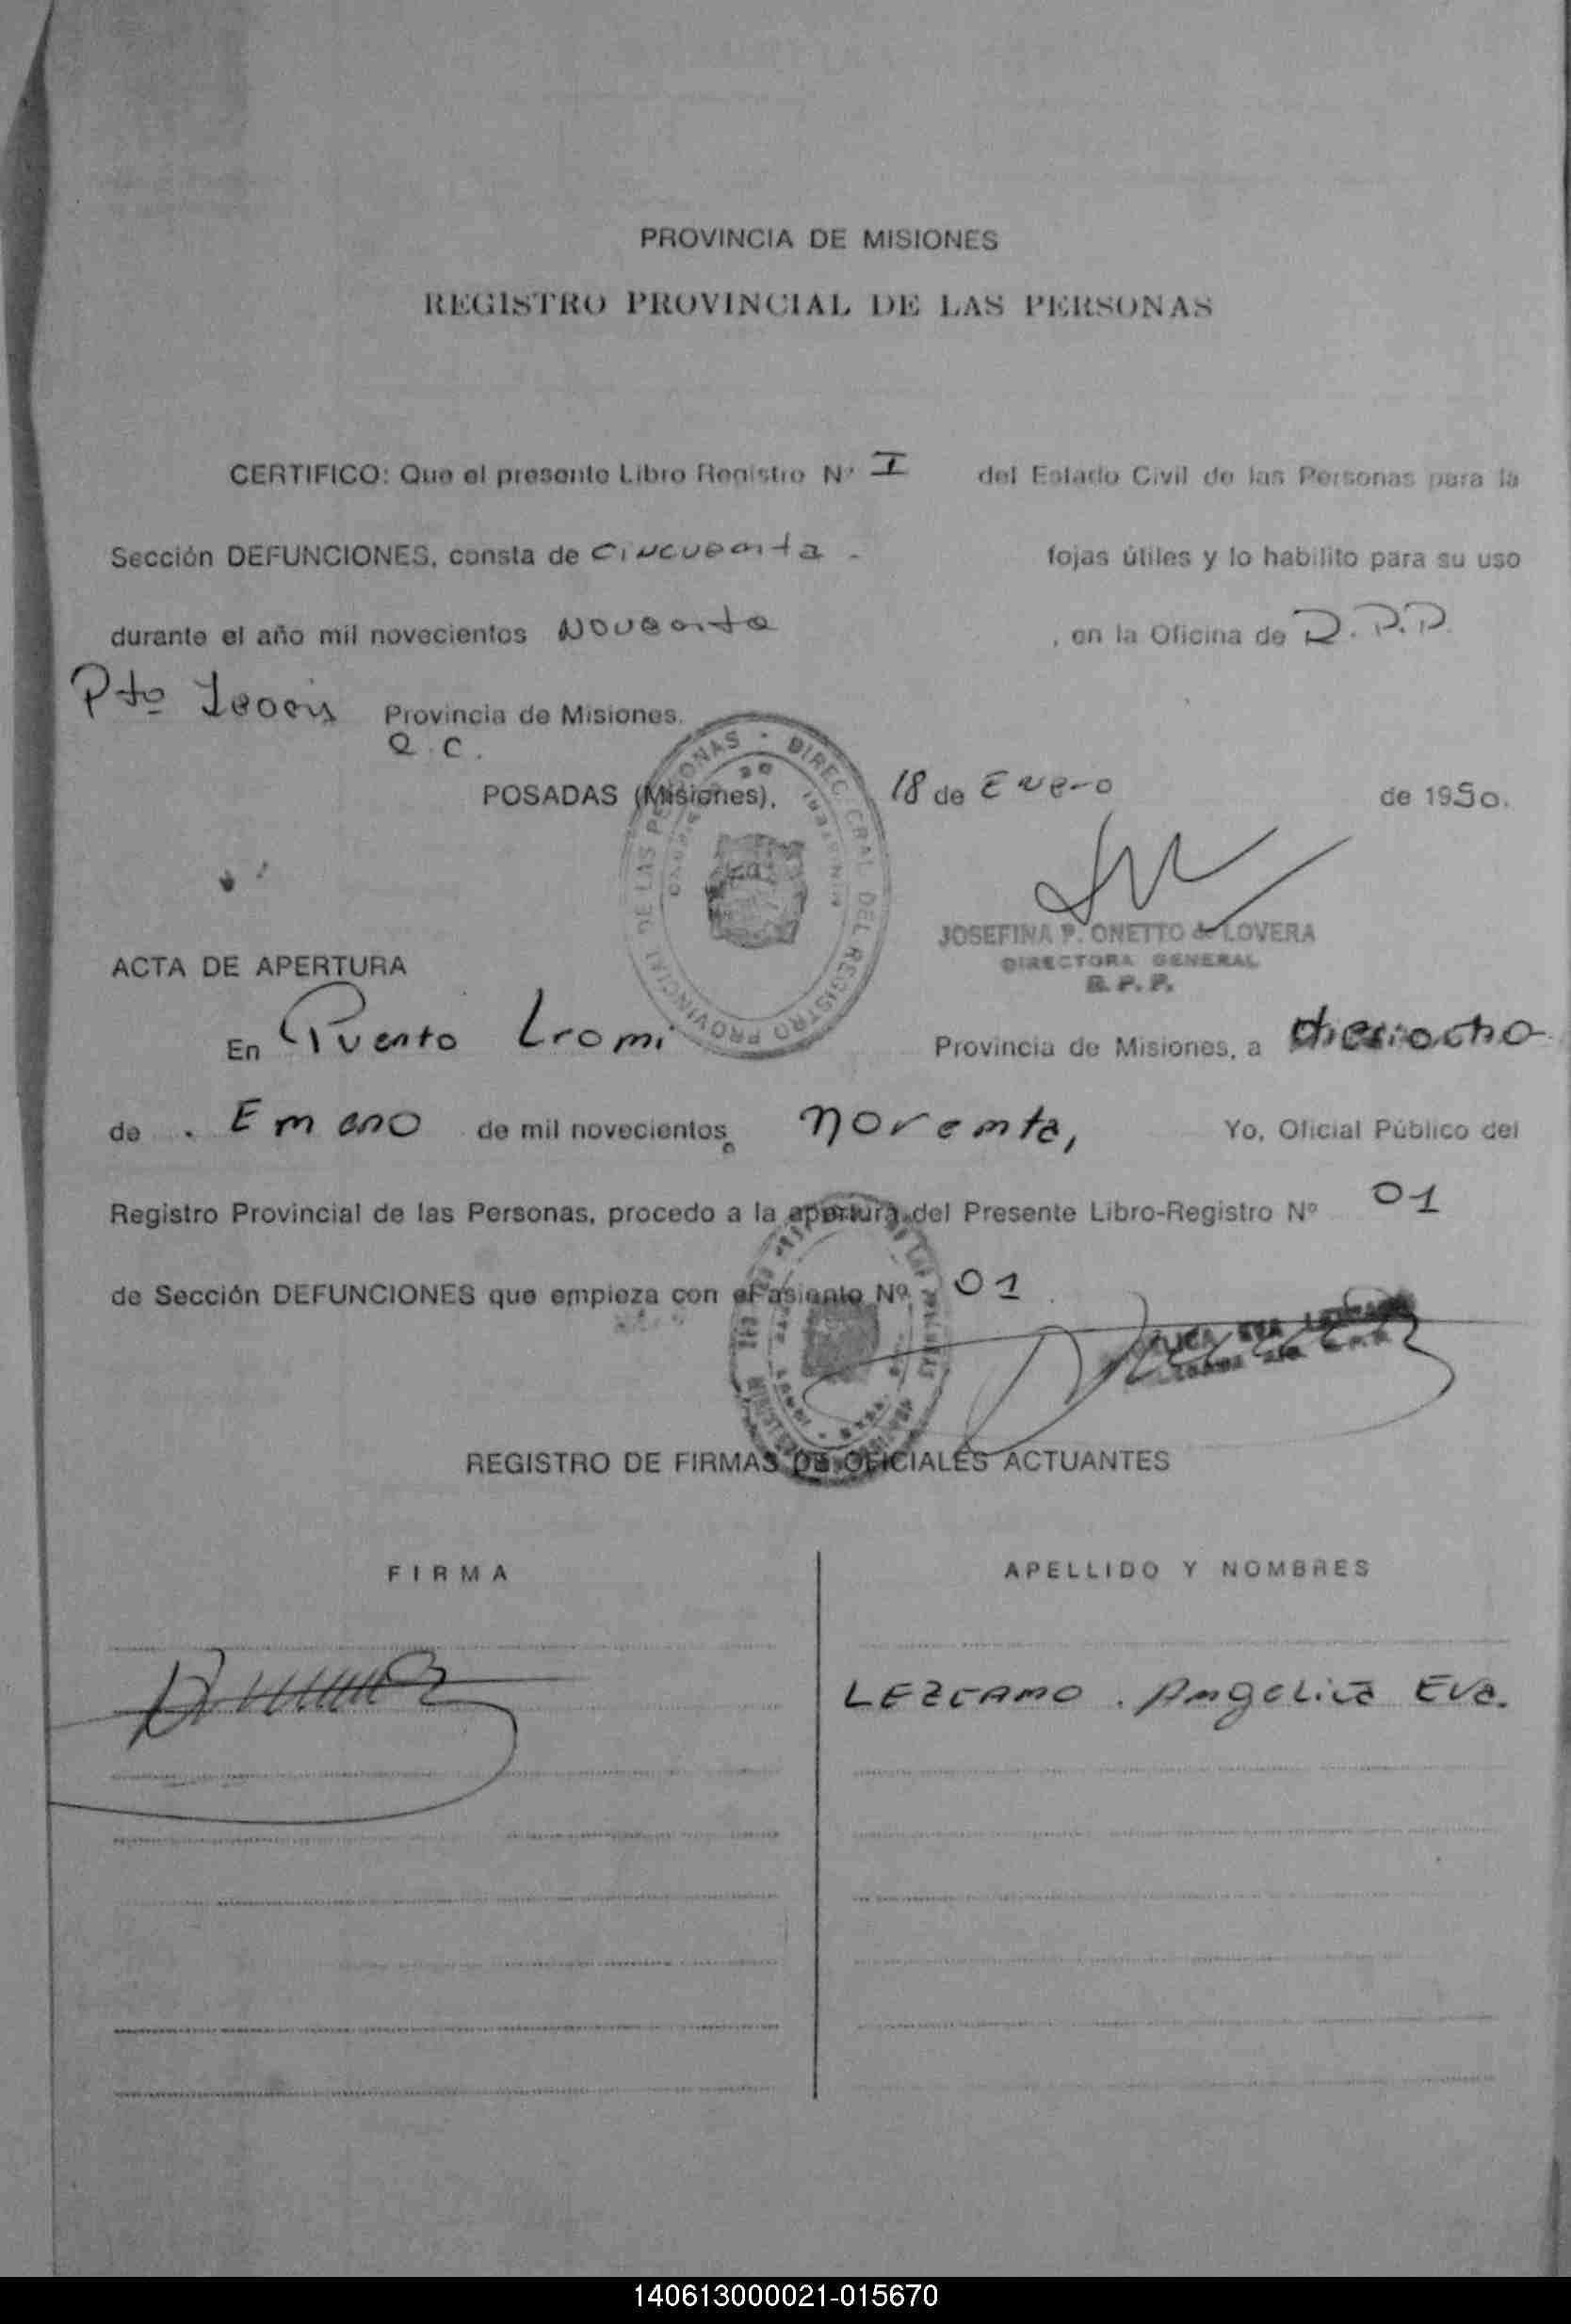 PROVINCIA DE MISIONES
REGISTRO PROVINCIAL DE LAS PERSONAS
CERTIFICO: Que el presente Libro Registro Nº I del Estado Civil de las Personas para la
Sección DEFUNCIONES, consta de cincuenta - fojas útiles y lo habilito para su uso
durante el año mil novecientos Noventa , en la Oficina de
Pto Provincia de Misiones.
POSADAS (Misiones), 18 de Enero de 1990.
DIREC. GRAL. DEL REGISTRO PROVINCIAL DE LAS PERSONAS
JOSEFINA P. ONETTO de LOVERA
DIRECTORA GENERAL
R. P. P.
ACTA DE APERTURA
En Puerto Provincia de Misiones, a dieciocho
de . Enero de mil novecientos noventa, Yo, Oficial Público del
Registro Provincial de las Personas, procedo a la apertura del Presente Libro-Registro Nº 01
de Sección DEFUNCIONES que empieza con el asiento Nº 01
REGISTRO DE FIRMAS DE OFICIALES ACTUANTES
FIRMA APELLIDO Y NOMBRES
LEZCANO . Angelica Eva.
140613000021-015670